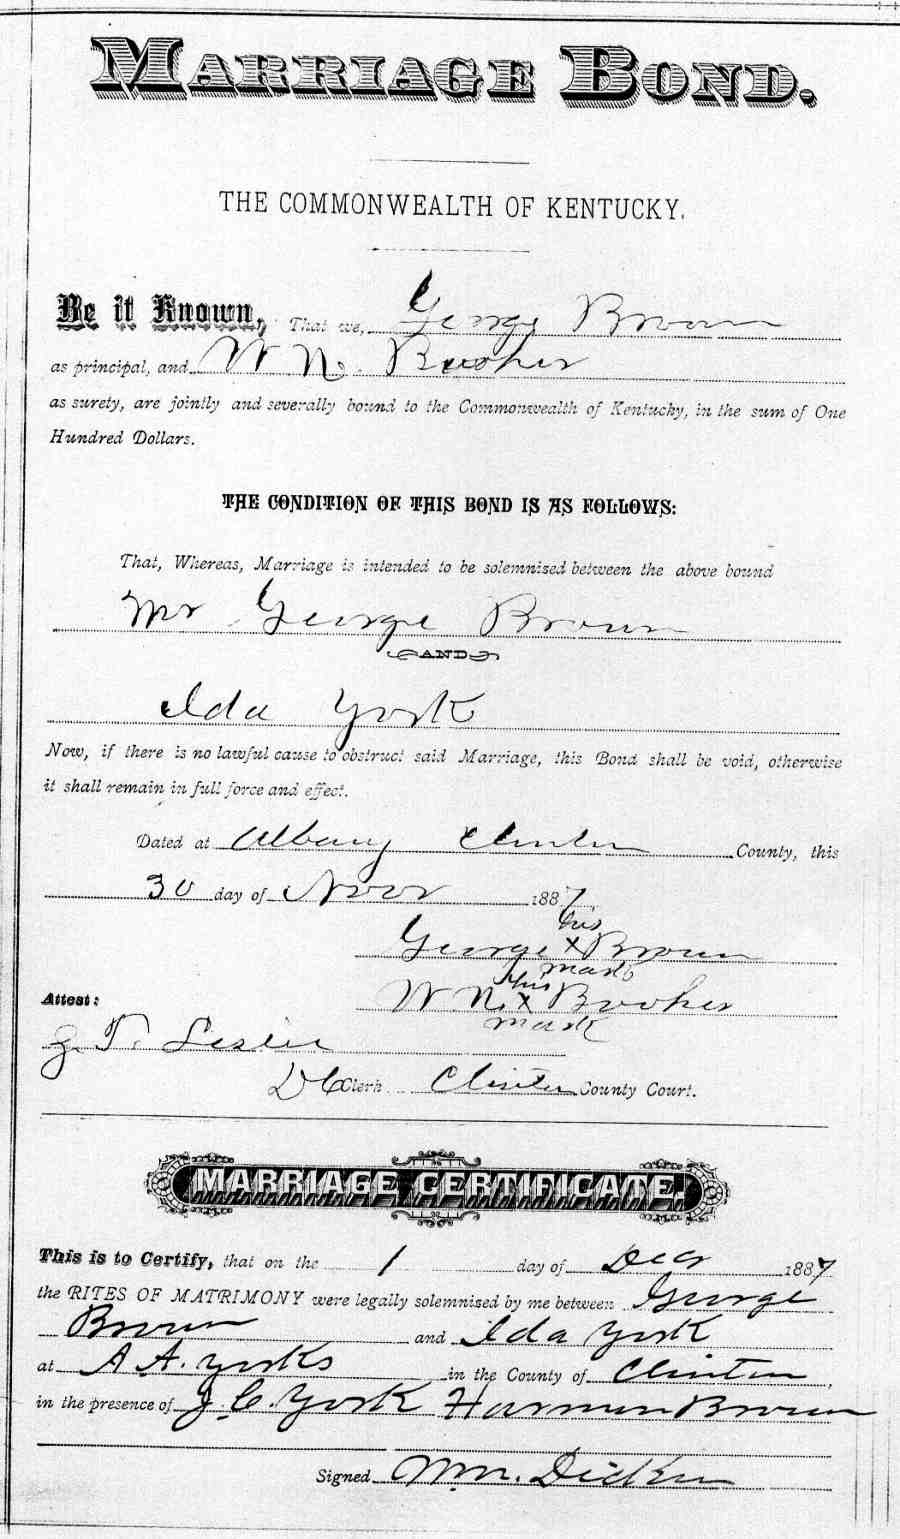 MARRIAGE BOND.
THE COMMONWEALTH OF KENTUCKY.
Be it Known, That we, George Brown
as principal, and W N. Booher
as surety, are jointly and severally bound to the Commonwealth of Kentucky, in the sum of One
Hundred Dollars.
THE CONDITION OF THIS BOND IS AS FOLLOWS:
That, Whereas, Marriage is intended to be solemnized between the above bound
Mr George Brown
AND
Ida York
Now, if there is no lawful cause to obstruct said Marriage, this Bond shall be void, otherwise
it shall remain in full force and effect.
Dated at Albany Clinton County, this
30 day of Novr 1887
his
George X Brown
mark
his
W N. X Booher
mark
Attest:
J. T. Leslie
DC Clerk Clinton County Court.
MARRIAGE CERTIFICATE.
This is to Certify, that on the 1 day of Decr 1887
the RITES OF MATRIMONY were legally solemnized by me between George
Brown and Ida York
at A A. Yorks in the County of Clinton,
in the presence of J. C. York Harmon Brown
Signed Wm. Dicken